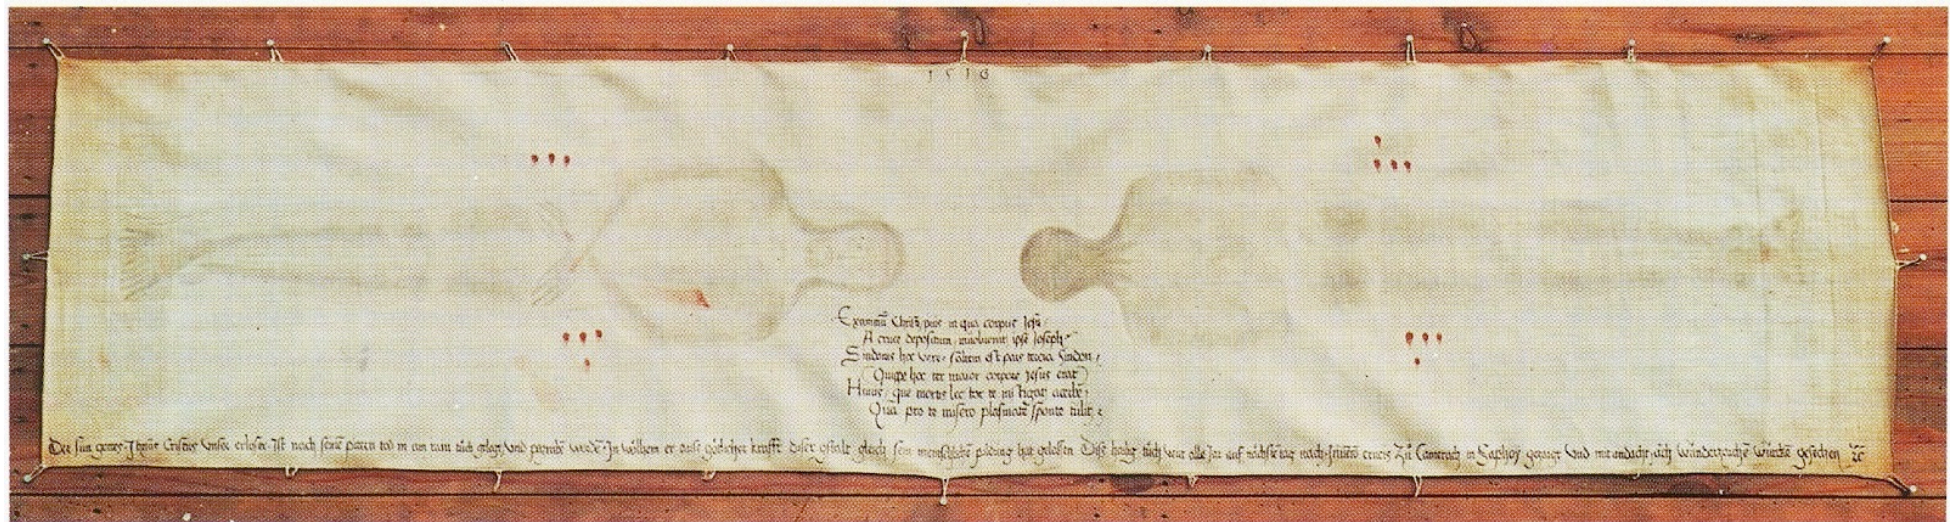 1516
Exanimū Christi, pars in qua corpus Jesu
A cruce depositum, involuerit ipse Joseph
Sindonis hec vere, saltem est pars tercia sindon
(Quippe hoc ter maior corpore Jesus erat)
Huius, que mortis lector te instigat acerbe
Quā pro te misero plasmate sponte tulit
Der sun gottes Jhesus Cristus Unser erloser Ist nach seinē tod in ain rain tůch gelegt Und worde In wöllhem er aus götlicher krafft diser gstalt gleich sein menschliche pildung hat gelassen Diss heilig tůch wirt alle Jar auf nächstē tag nach crucis Zů Camerach in Saphoy gezaigt Und mit andacht, auch wunderzaichē gesechen